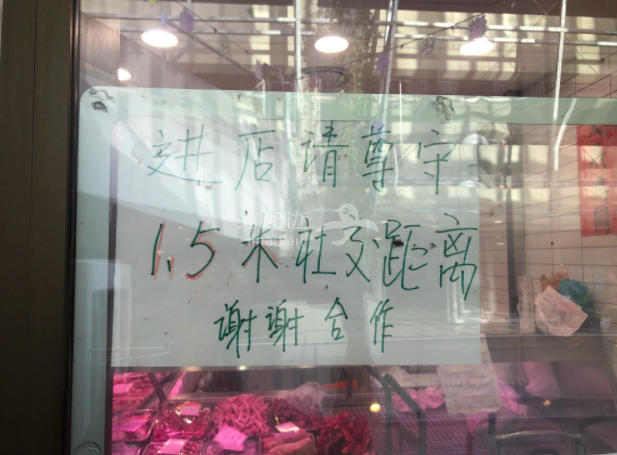 进店请尊守
1.5米社交距离
谢谢合作